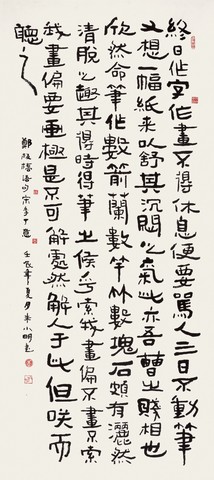 終日作字作畫不得休息便要罵人三日不動筆
又想一幅紙來以舒其沉悶之氣此亦吾曹之賤相也
欣然命筆作數箭蘭數竿竹數塊石頗有灑然
清脫之趣其得時得筆之候乎索我畫偏不畫不索
我畫偏要畫極是不可解處然解人于此但咲而
聽之
鄭板橋語句
壬辰年夏月朱小明